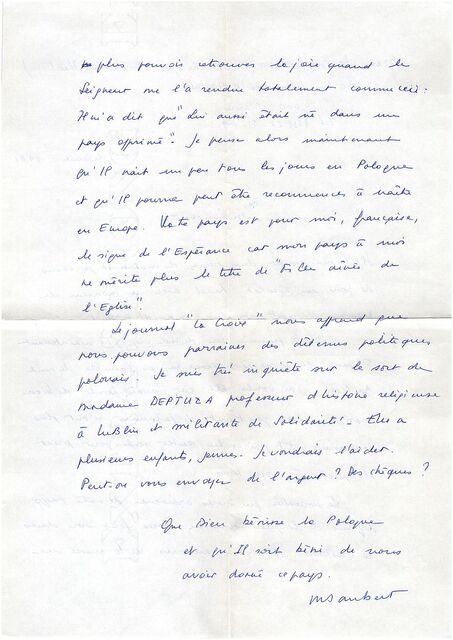 plus pouvoir retrouver la joie quand le
Seigneur me l'a rendue totalement comme ceci :
Il m'a dit que "Lui aussi était né dans un
pays opprimé". Je pense alors maintenant
qu'Il naît un peu tous les jours en Pologne
et qu'Il pourra peut être recommencer à naître
en Europe. Votre pays est pour moi, française,
le signe de l'Espérance car mon pays à moi
ne mérite plus le titre de "Fille aînée de
l'Eglise".
Le journal "La Croix" nous apprend que
nous pouvons parrainer des détenus politiques
polonais. Je suis très inquiète sur le sort de
Madame DEPTUZA professeur d'histoire religieuse
à Lublin et militante de Solidarité. Elle a
plusieurs enfants, jeunes. Je voudrais l'aider.
Peut-on vous envoyer de l'argent ? Des chèques ?
Que Dieu bénisse la Pologne
et qu'Il soit béni de nous
avoir donné ce pays.